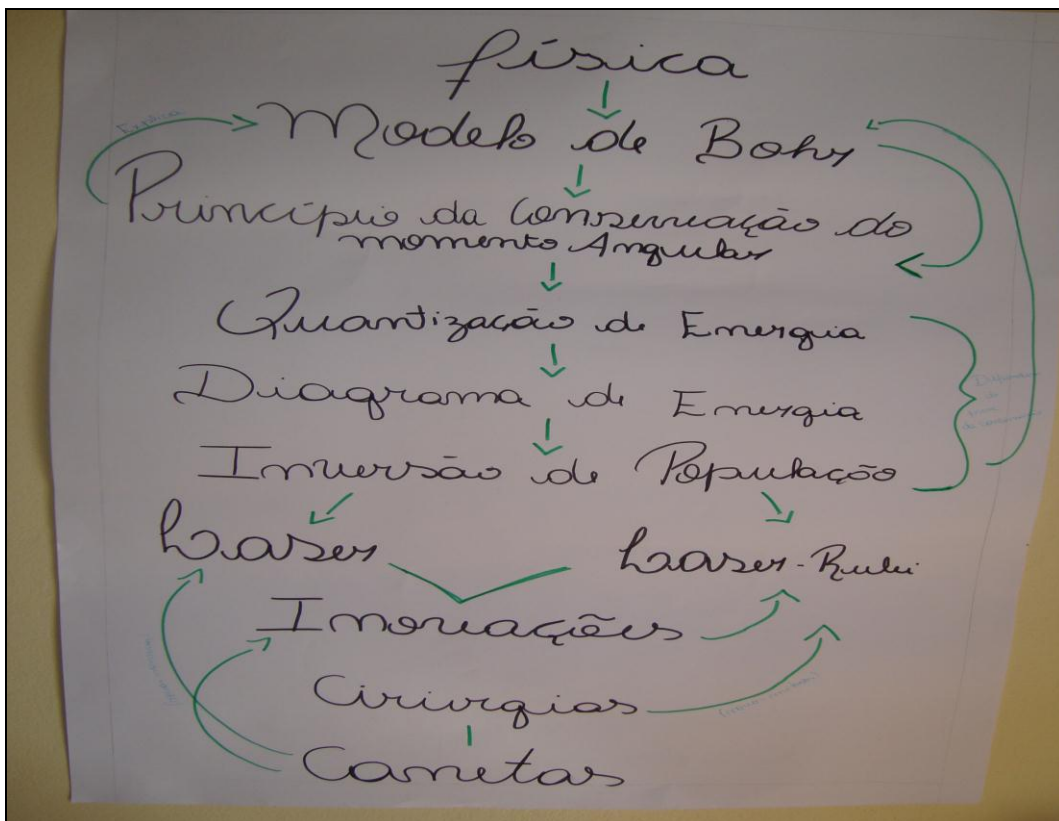 física
Modelo de Bohr
Explica
Princípio da Conservação do
momento Angular
Quantização de Energia
Diagrama de Energia
Inversão de População
Laser
Laser-Rubi
Inovações
Cirurgias
Canetas